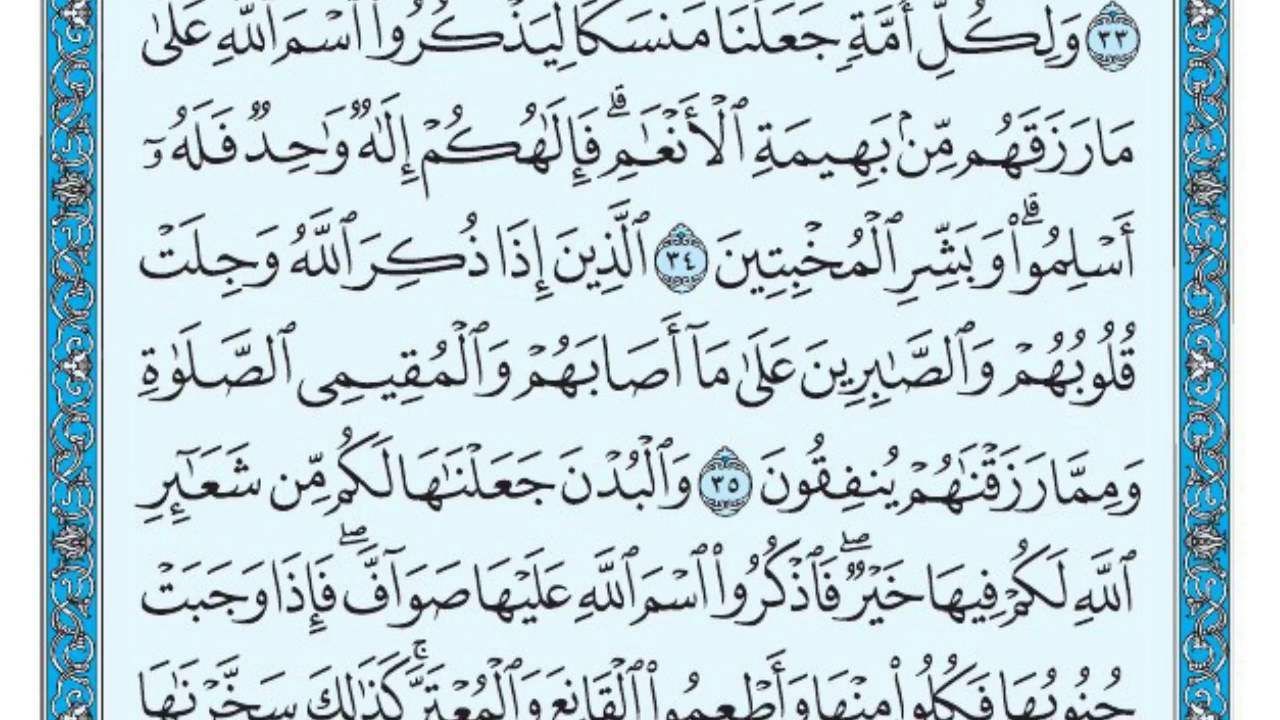 ٣٣ وَلِكُلِّ أُمَّةٍ جَعَلْنَا مَنسَكًا لِّيَذْكُرُوا۟ ٱسْمَ ٱللَّهِ عَلَىٰ
مَا رَزَقَهُم مِّنۢ بَهِيمَةِ ٱلْأَنْعَٰمِ ۗ فَإِلَٰهُكُمْ إِلَٰهٌ وَٰحِدٌ فَلَهُۥٓ
أَسْلِمُوا۟ ۗ وَبَشِّرِ ٱلْمُخْبِتِينَ ٣٤ ٱلَّذِينَ إِذَا ذُكِرَ ٱللَّهُ وَجِلَتْ
قُلُوبُهُمْ وَٱلصَّٰبِرِينَ عَلَىٰ مَآ أَصَابَهُمْ وَٱلْمُقِيمِى ٱلصَّلَوٰةِ
وَمِمَّا رَزَقْنَٰهُمْ يُنفِقُونَ ٣٥ وَٱلْبُدْنَ جَعَلْنَٰهَا لَكُم مِّن شَعَٰٓئِرِ
ٱللَّهِ لَكُمْ فِيهَا خَيْرٌ ۖ فَٱذْكُرُوا۟ ٱسْمَ ٱللَّهِ عَلَيْهَا صَوَآفَّ ۖ فَإِذَا وَجَبَتْ
جُنُوبُهَا فَكُلُوا۟ مِنْهَا وَأَطْعِمُوا۟ ٱلْقَانِعَ وَٱلْمُعْتَرَّ ۚ كَذَٰلِكَ سَخَّرْنَٰهَا